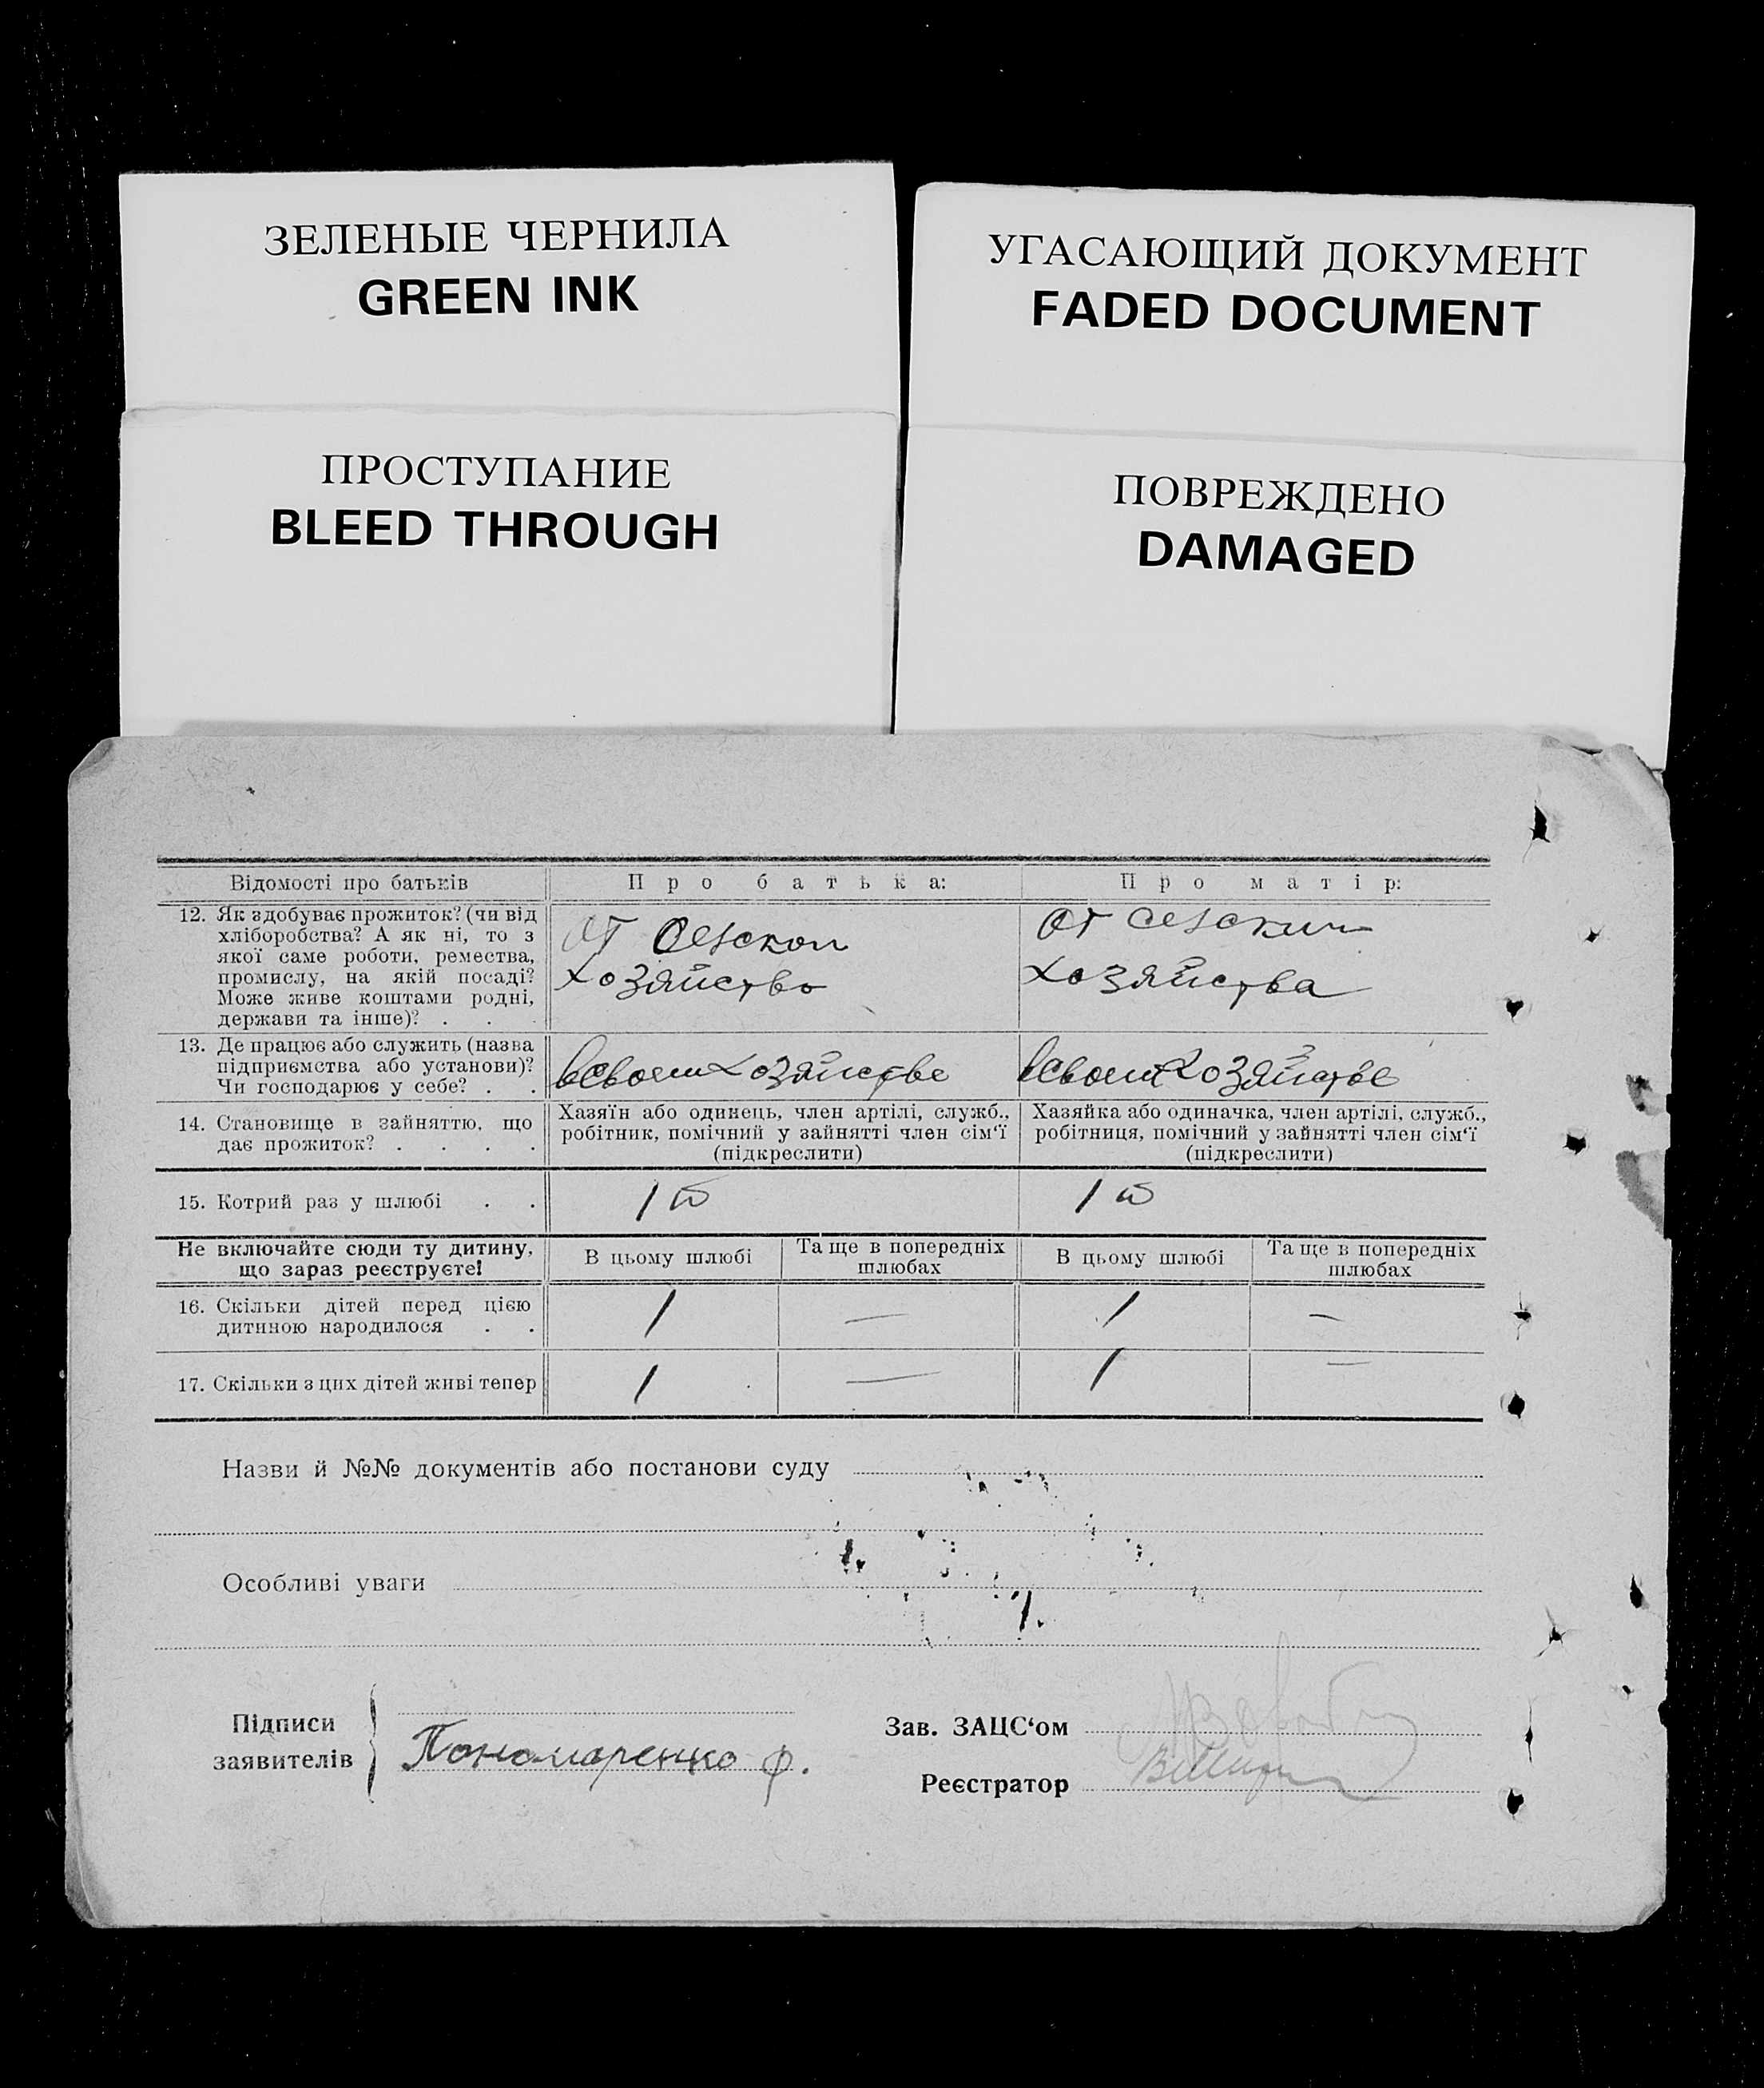 ЗЕЛЕНЫЕ ЧЕРНИЛА
GREEN INK
УГАСАЮЩИЙ ДОКУМЕНТ
FADED DOCUMENT
ПРОСТУПАНИЕ
BLEED THROUGH
ПОВРЕЖДЕНО
DAMAGED
Відомості про батьків
Про батька:
Про матір:
12. Як здобуває прожиток? (чи від
хліборобства? А як ні, то з
якої саме роботи, ремества,
промислу, на якій посаді?
Може живе коштами родні,
держави та інше)? . .
от
хозяйство
от
хозяйства
13. Де працює або служить (назва
підприємства або установи)?
Чи господарює у себе? . .
всвоем хозяйстве
всвоем хозяйстве
14. Становище в зайняттю, що
дає прожиток? . . . .
Хазяїн або одинець, член артілі, служб.,
робітник, помічний у зайнятті член сім‘ї
(підкреслити)
Хазяйка або одиначка, член артілі, служб.,
робітниця, помічний у зайнятті член сім‘ї
(підкреслити)
15. Котрий раз у шлюбі . .
1й
1й
Не включайте сюди ту дитину,
що зараз реєструєте!
В цьому шлюбі
Та ще в попередніх
шлюбах
В цьому шлюбі
Та ще в попередніх
шлюбах
16. Скільки дітей перед цією
дитиною народилося . .
1
—
1
—
17. Скільки з цих дітей живі тепер
1
—
1
—
Назви й №№ документів або постанови суду
Особливі уваги
Підписи
заявителів
Пономаренко Ф.
Зав. ЗАЦС‘ом
Реєстратор